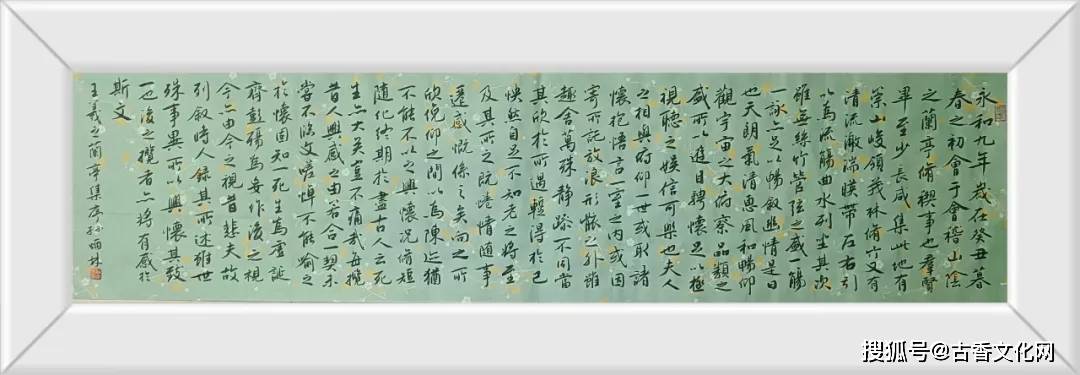 永和九年歲在癸丑暮
春之初會于會稽山陰
之蘭亭脩稧事也羣賢
畢至少長咸集此地有
崇山峻領茂林脩竹又有
清流激湍暎帶左右引
以為流觴曲水列坐其次
雖無絲竹管弦之盛一觴
一詠亦足以暢敘幽情是日
也天朗氣清惠風和暢仰
觀宇宙之大俯察品類之
盛所以遊目騁懷足以極
視聽之娛信可樂也夫人
之相與俯仰一世或取諸
懷抱悟言一室之內或因
寄所託放浪形骸之外雖
趣舍萬殊静躁不同當
其欣於所遇蹔得於己
怏然自足不知老之將至
及其所之既惓情隨事
遷感慨係之矣向之所
欣俛仰之間以為陳迹猶
不能不以之興懷況脩短
隨化終期於盡古人云死
生亦大矣豈不痛哉每攬
昔人興感之由若合一契未
嘗不臨文嗟悼不能喻之
於懷固知一死生為虛誕
齊彭殤為妄作後之視
今亦由今之視昔悲夫故
列敘時人錄其所述雖世
殊事異所以興懷其致
一也後之攬者亦將有感於
斯文
王羲之蘭亭集序孫
搜狐号@古香文化网